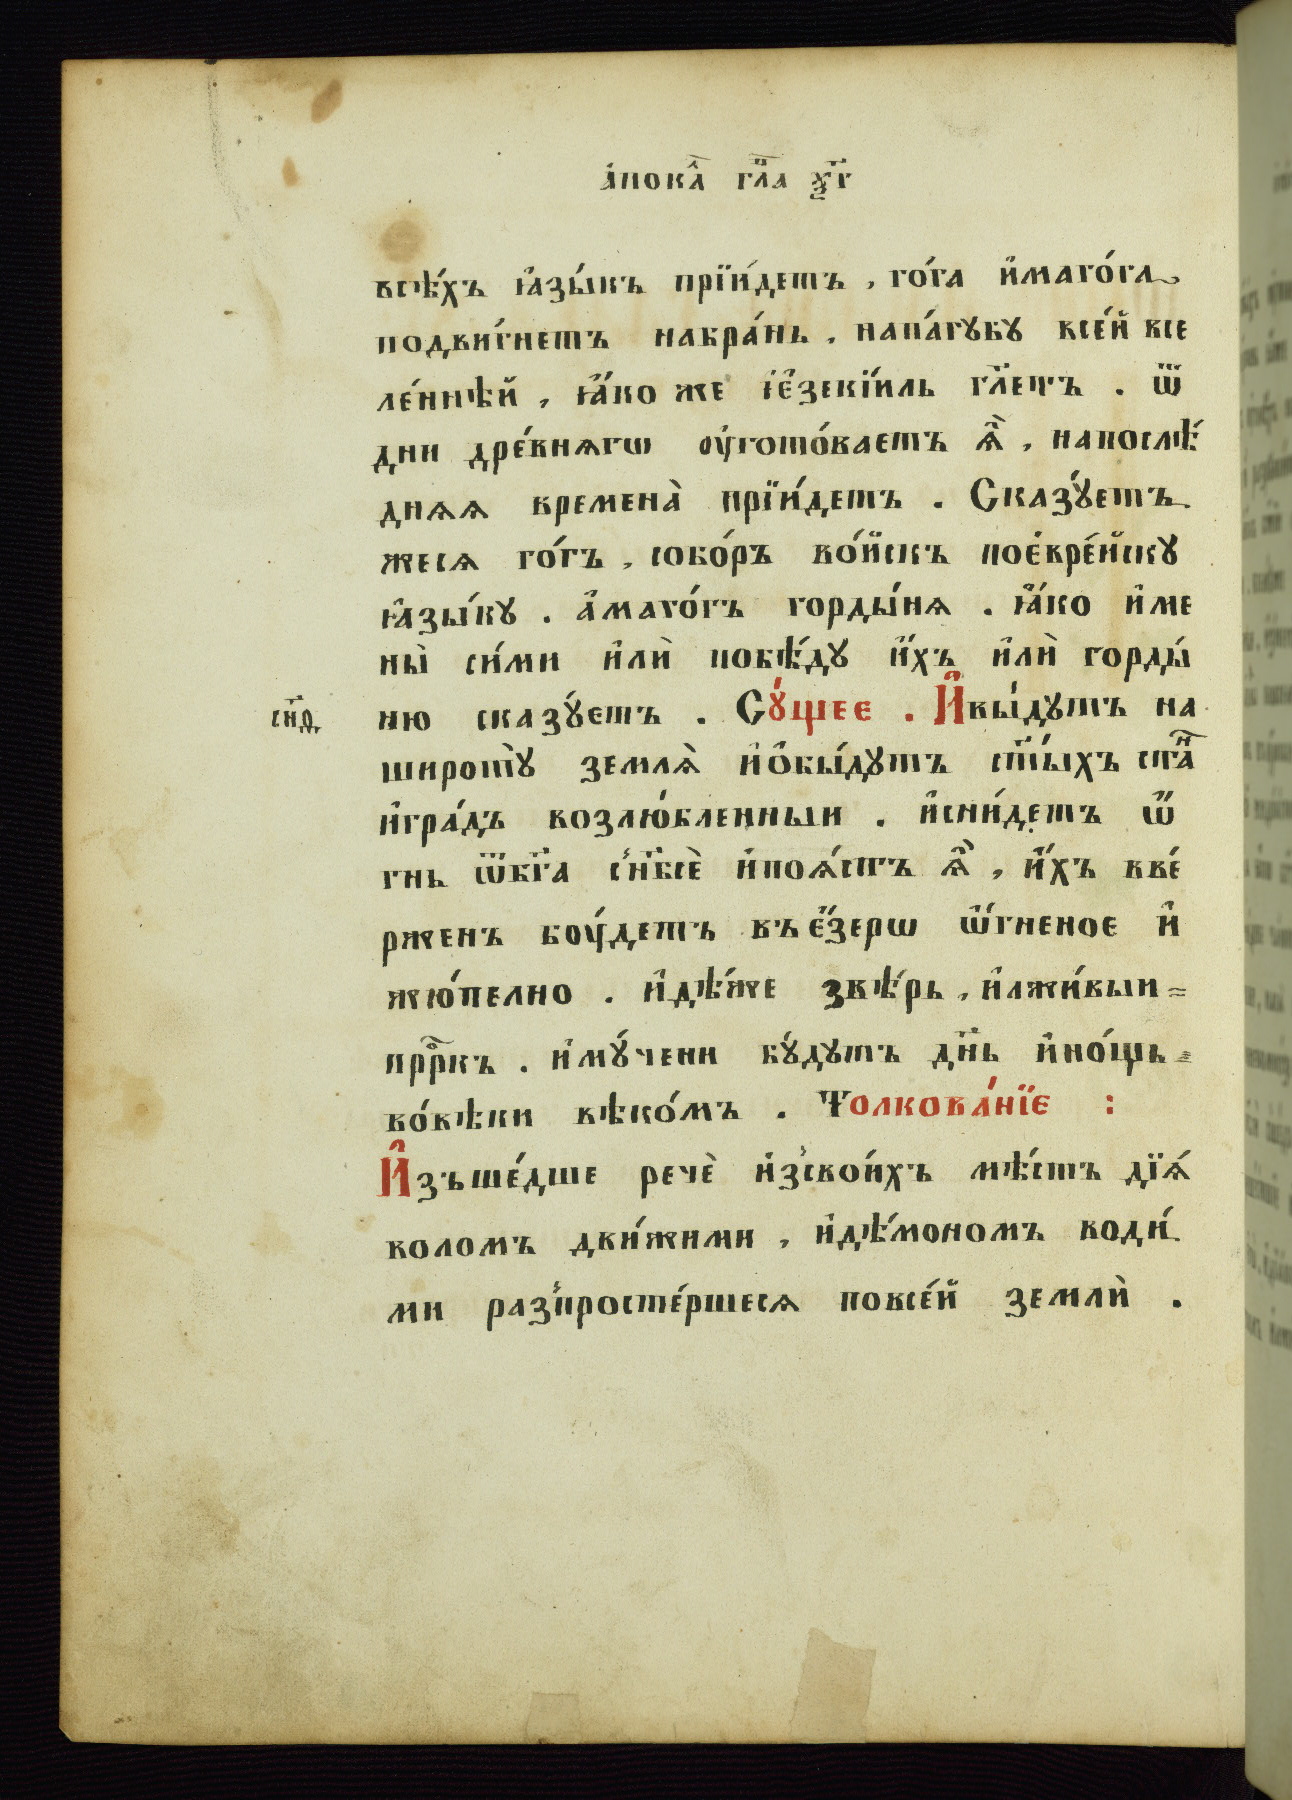 а҆пока́л гл҃а ѯ҃г
всѣ́хъ ꙗ҆зы́къ прїи́детъ , го́га и҆маго́га
подви́гнетъ набра́нь . напа́гꙋбꙋ все́й все
ле́ннѣй , ꙗ҆́ко же і҆е҆зекі́иль гл҃етъ . ѿ
дни дре́внягѡ оу҆гото́ваетъ ѧ҆̀ , напослѣ́
дняя времена̀ прїи́детъ . Сказꙋ́етъ
жеся го́гъ , собо́ръ во́йскъ пое҆вре́йскꙋ
ꙗ҆зы́кꙋ . а҆маго́гъ горды́ня . ꙗ҆́ко и҆ме
ны̀ си́ми и҆лѝ побѣ́дꙋ и҆́хъ и҆лѝ горды́
ню сказꙋ́етъ . Сꙋ́щее . И҆вы́дꙋтъ на
сн҃д
широтꙋ̀ земля̀ и҆ѻ҆бы́дꙋтъ ст҃ы́хъ ста́н
и҆гра́дъ возлю́бленныи . и҆сни́детъ ѻ҆
гнь ѿбг҃а с'нб҃сѐ и҆поя́стъ ѧ҆̀ , и҆́хъ вве́
рженъ боу́детъ въе҆́зерѡ ѻ҆́гненое и҆
жю́пелно . и҆дѣ́же звѣ́рь , и҆лжи́выи
прⷪ҇ркъ . и҆мꙋ́чени бꙋ́дꙋтъ дн҃ь и҆но́щь
во́вѣки вѣко́мъ . Толкова́нїе :
И҆зъше́дше речѐ и҆з'свои́хъ мѣ́стъ дїя́
воломъ дви́жими , и҆дѣ́мономъ води́
ми раз'просте́ршеся повсе́й землѝ .